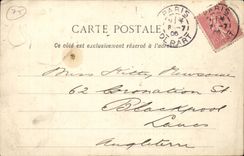 CARTE POSTALE
Ce côté est exclusivement réservé à l'adresse
PARIS
DEPART
Miss Kitty Newsome
62 Coronation St
Blackpool
Lancs
Angleterre